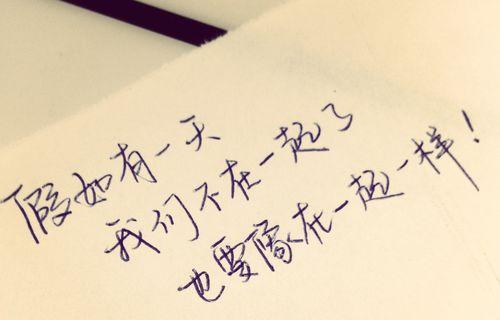 假如有一天
我们不在一起了
也要像在一起一样！